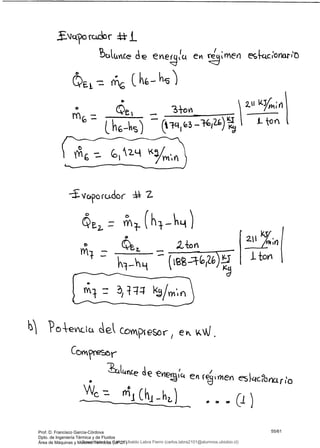 Evaporador #1
Balance de energía en régimen estacionario
Q̇E1 = ṁ6 (h6-h5)
ṁ6 = Q̇E1 / (h6-h5) = 3 ton / (174,63-76,26) kJ/kg | 211 kJ/min / 1 ton |
ṁ6 = 6,124 kg/min
Evaporador # 2
Q̇E2 = ṁ7 (h7-h4)
ṁ7 = Q̇E2 / h7-h4 = 2 ton / (188-76,26) kJ/kg | 211 kJ/min / 1 ton |
ṁ7 = 3,777 kg/min
b) Potencia del compresor, en kW.
Compresor
Balance de energía en régimen estacionario
Ẇc = ṁ1 (h1-h2) ... (1)
Prof. D. Francisco García-Córdova
Dpto. de Ingeniería Térmica y de Fluidos
Área de Máquinas y Motores Térmicos (UPCT)
55/61